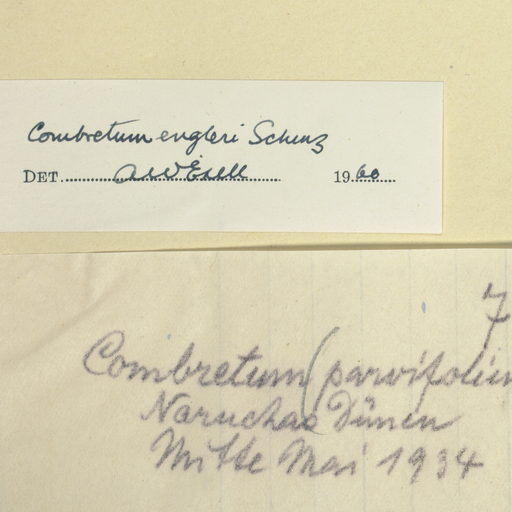 Combretum engleri Schinz
DET. AW Exell 1960
7
Combretum (parvifolium
Naruchas Dünen
Mitte Mai 1934